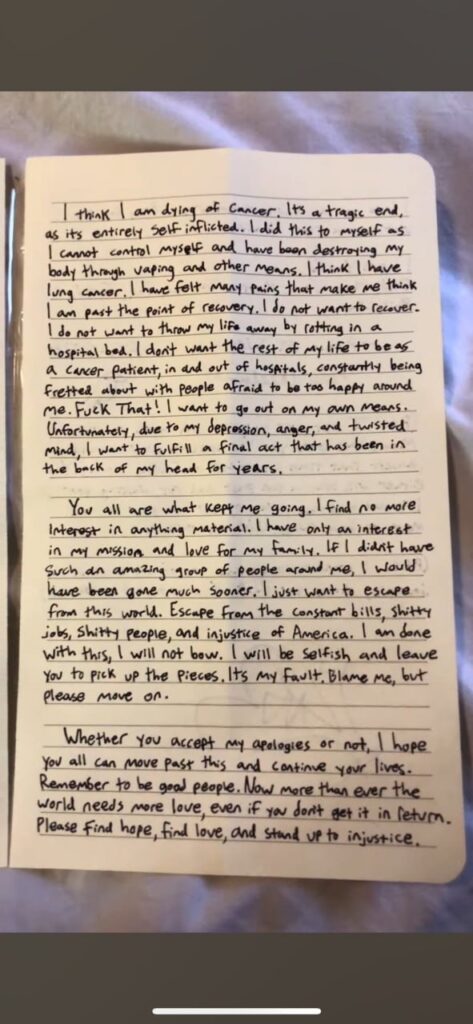 I think I am dying of cancer. Its a tragic end,
as its entirely self inflicted. I did this to myself as
I cannot control myself and have been destroying my
body through vaping and other means. I think I have
lung cancer. I have felt many pains that make me think
I am past the point of recovery. I do not want to recover.
I do not want to throw my life away by rotting in a
hospital bed. I don't want the rest of my life to be as
a cancer patient, in and out of hospitals, constantly being
fretted about with people afraid to be too happy around
me. Fuck That! I want to go out on my own means.
Unfortunately, due to my depression, anger, and twisted
mind, I want to fulfill a final act that has been in
the back of my head for years.
You all are what kept me going. I find no more
interest in anything material. I have only an interest
in my mission and love for my family. If I didnt have
such an amazing group of people around me, I would
have been gone much sooner. I just want to escape
from this world. Escape from the constant bills, shitty
jobs, shitty people, and injustice of America. I am done
with this, I will not bow. I will be selfish and leave
you to pick up the pieces. Its my fault. Blame me, but
please move on.
Whether you accept my apologies or not, I hope
you all can move past this and continue your lives.
Remember to be good people. Now more than ever the
world needs more love, even if you dont get it in return.
Please find hope, find love, and stand up to injustice.